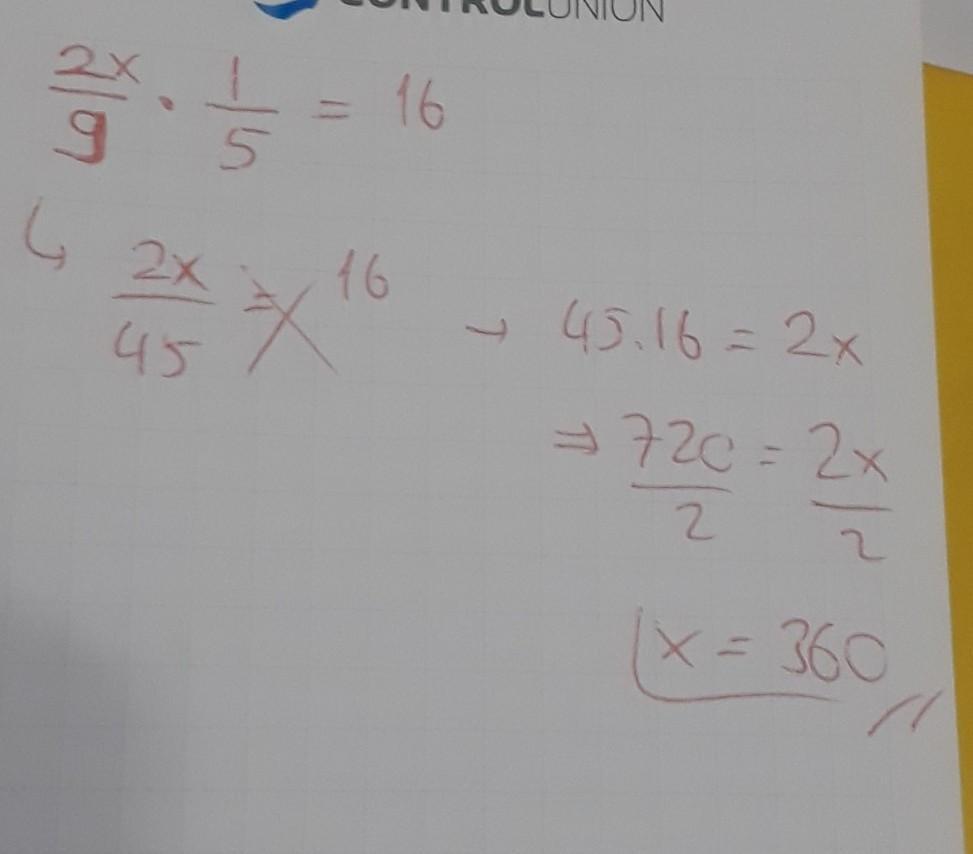 CONTROLUNION
2x/9 · 1/5 = 16
↳ 2x/45 = 16 → 45.16 = 2x
⇒ 720/2 = 2x/2
x = 360 //